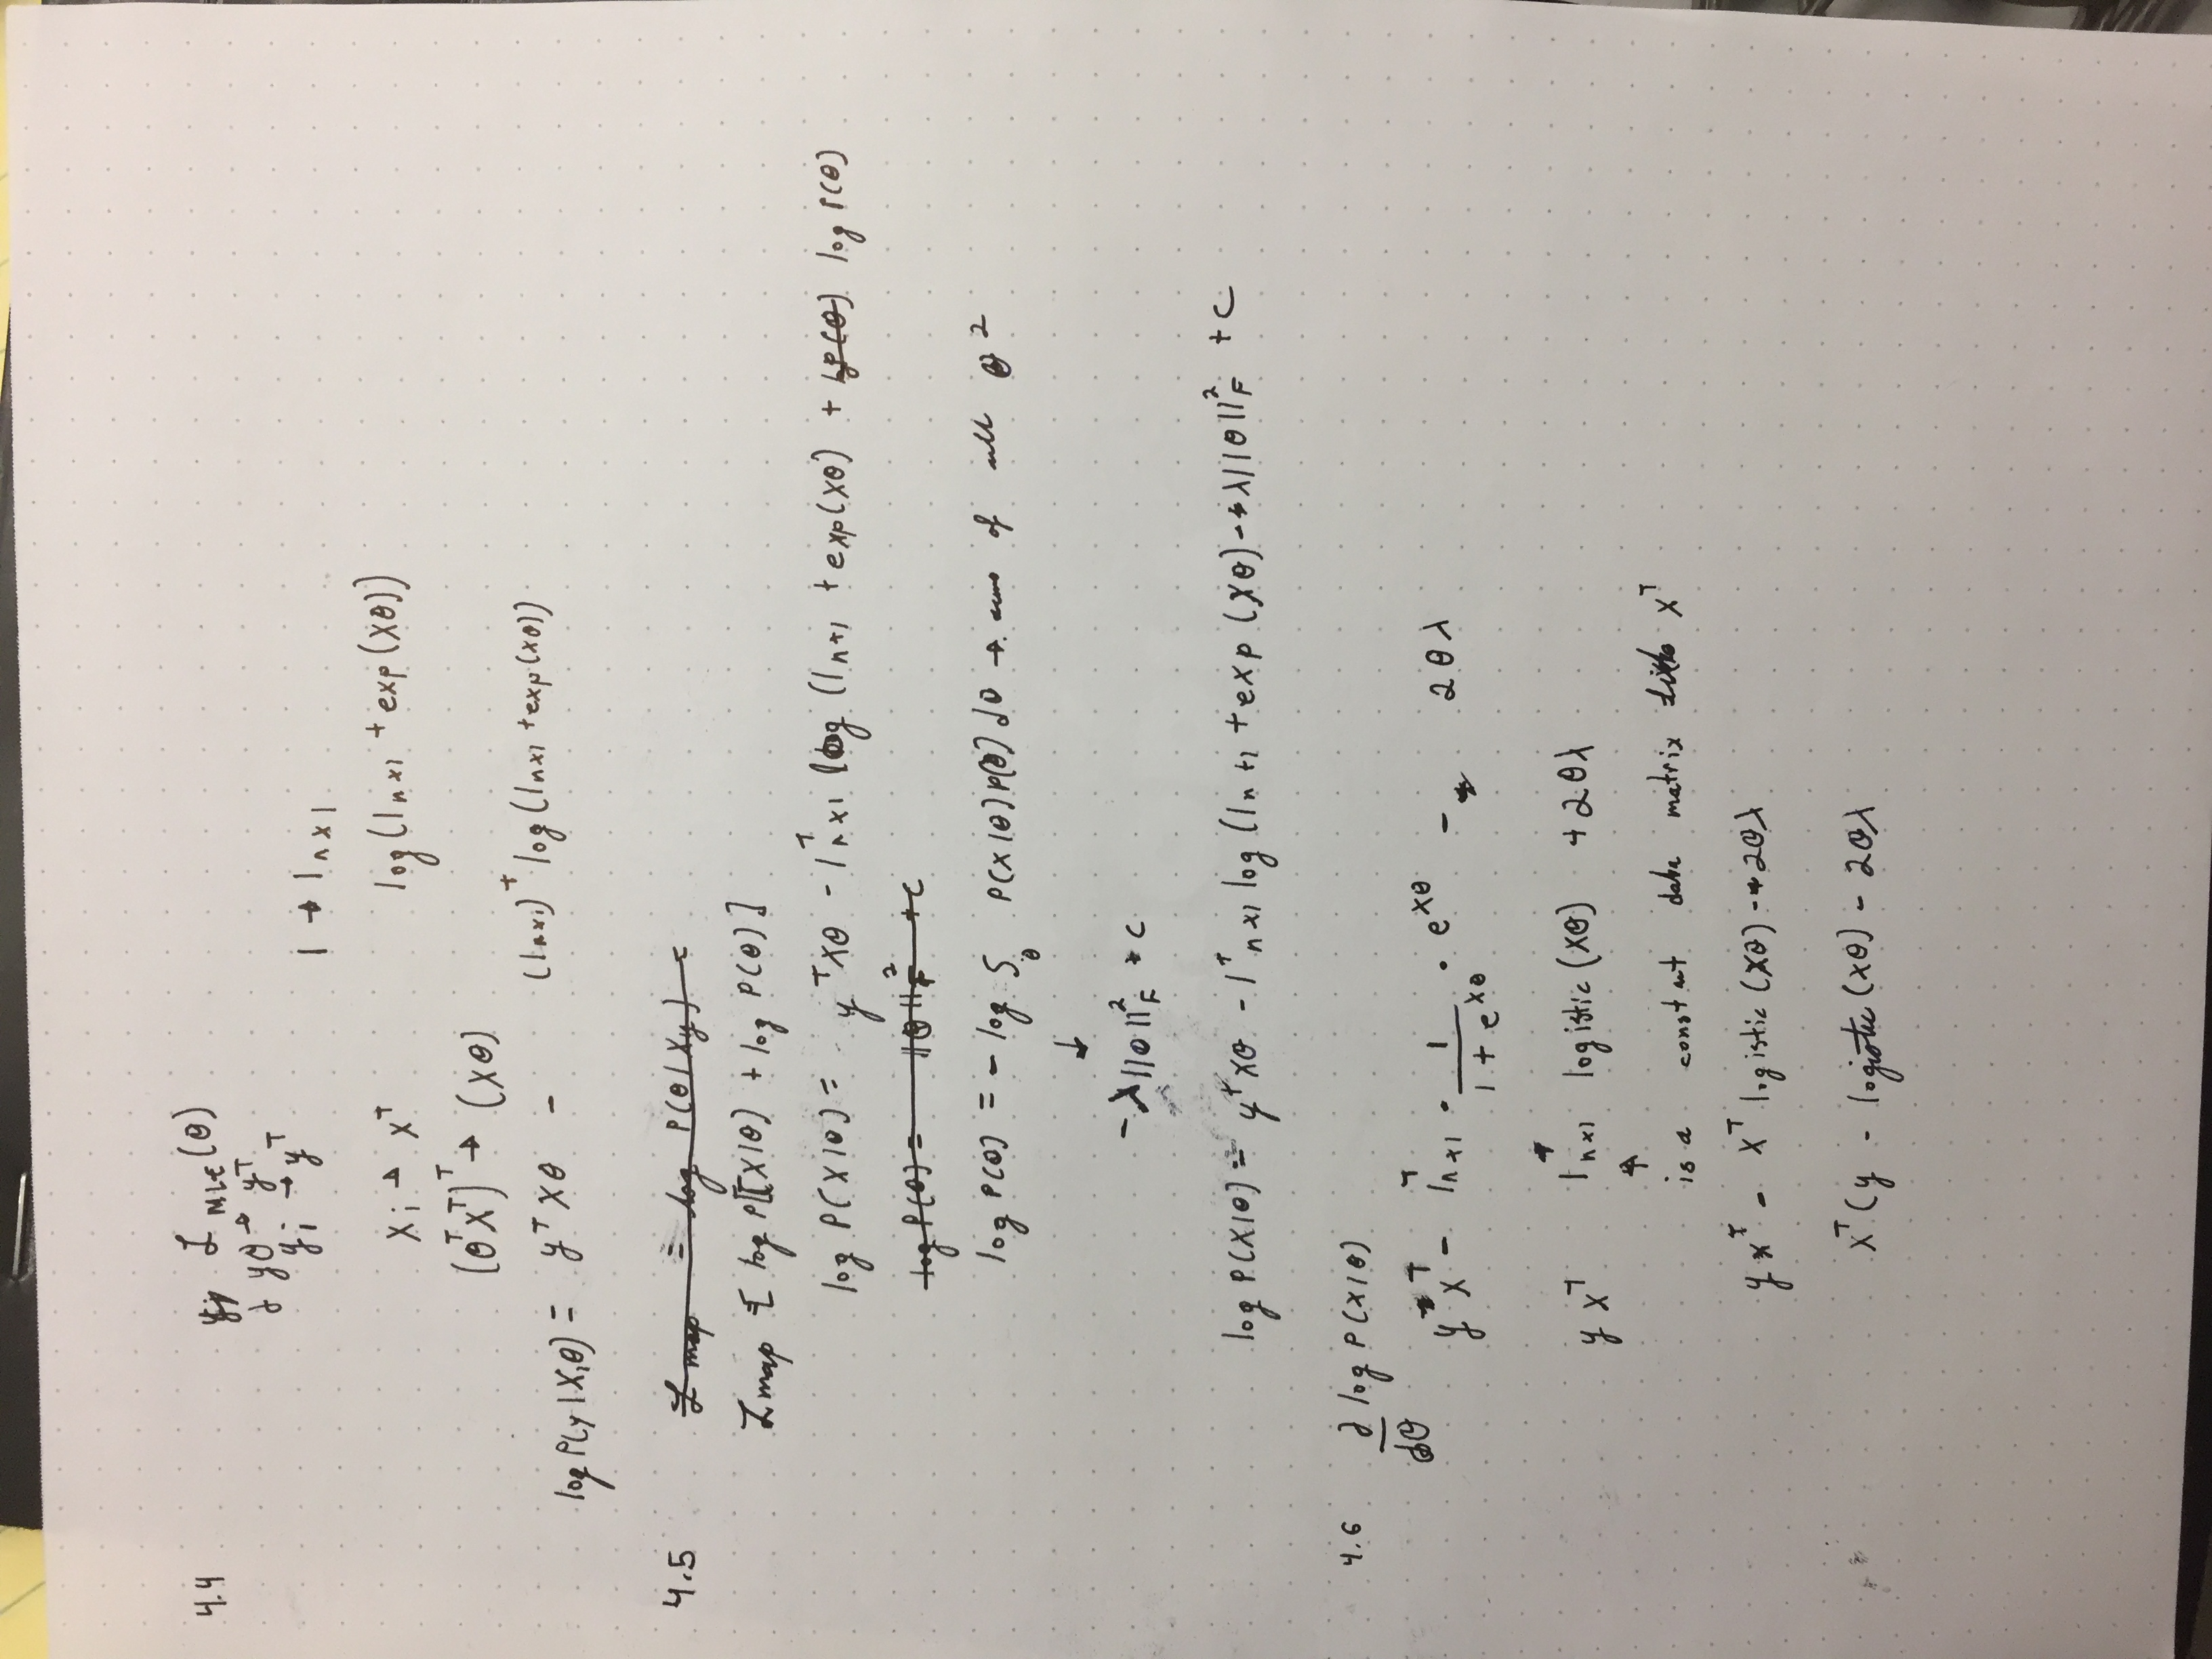 4.4 ℒ MLE (θ)
∂ yθ → y^T
y_i → y^T
1 → 1_{n×1}
x_i → x^T
log(1_{n×1} + exp(Xθ))
(θ^T X^T)^T → (Xθ)
log P(y|X,θ) = y^T Xθ - (1_{n×1})^T log(1_{n×1} + exp(xθ))
4.5 ℒ map = log P(θ|Xy) =
ℒ map = [ log P(X|θ) + log P(θ) ]
log P(X|θ) = y^T Xθ - 1^T_{n×1} log (1_{n+1} + exp(Xθ) + log P(θ) log P(θ)
log P(θ) = ||θ||^2_F + C
log P(θ) = - log ∫_θ P(X|θ) P(θ) dθ → sum of all θ^2
↓
-λ||θ||^2_F + C
log P(X|θ) = y^T Xθ - 1^T_{n×1} log (1_{n+1} + exp (Xθ) - λ||θ||^2_F + C
4.6 ∂/∂θ log P(X|θ)
y X^T - 1^T_{n×1} · 1/(1 + e^{Xθ}) · e^{Xθ} - 2θλ
y X^T 1^T_{n×1} logistic (Xθ) + 2θλ
↑
is a constant data matrix X^T
y x^T - X^T logistic (Xθ) - 2θλ
X^T (y - logistic (Xθ) - 2θλ